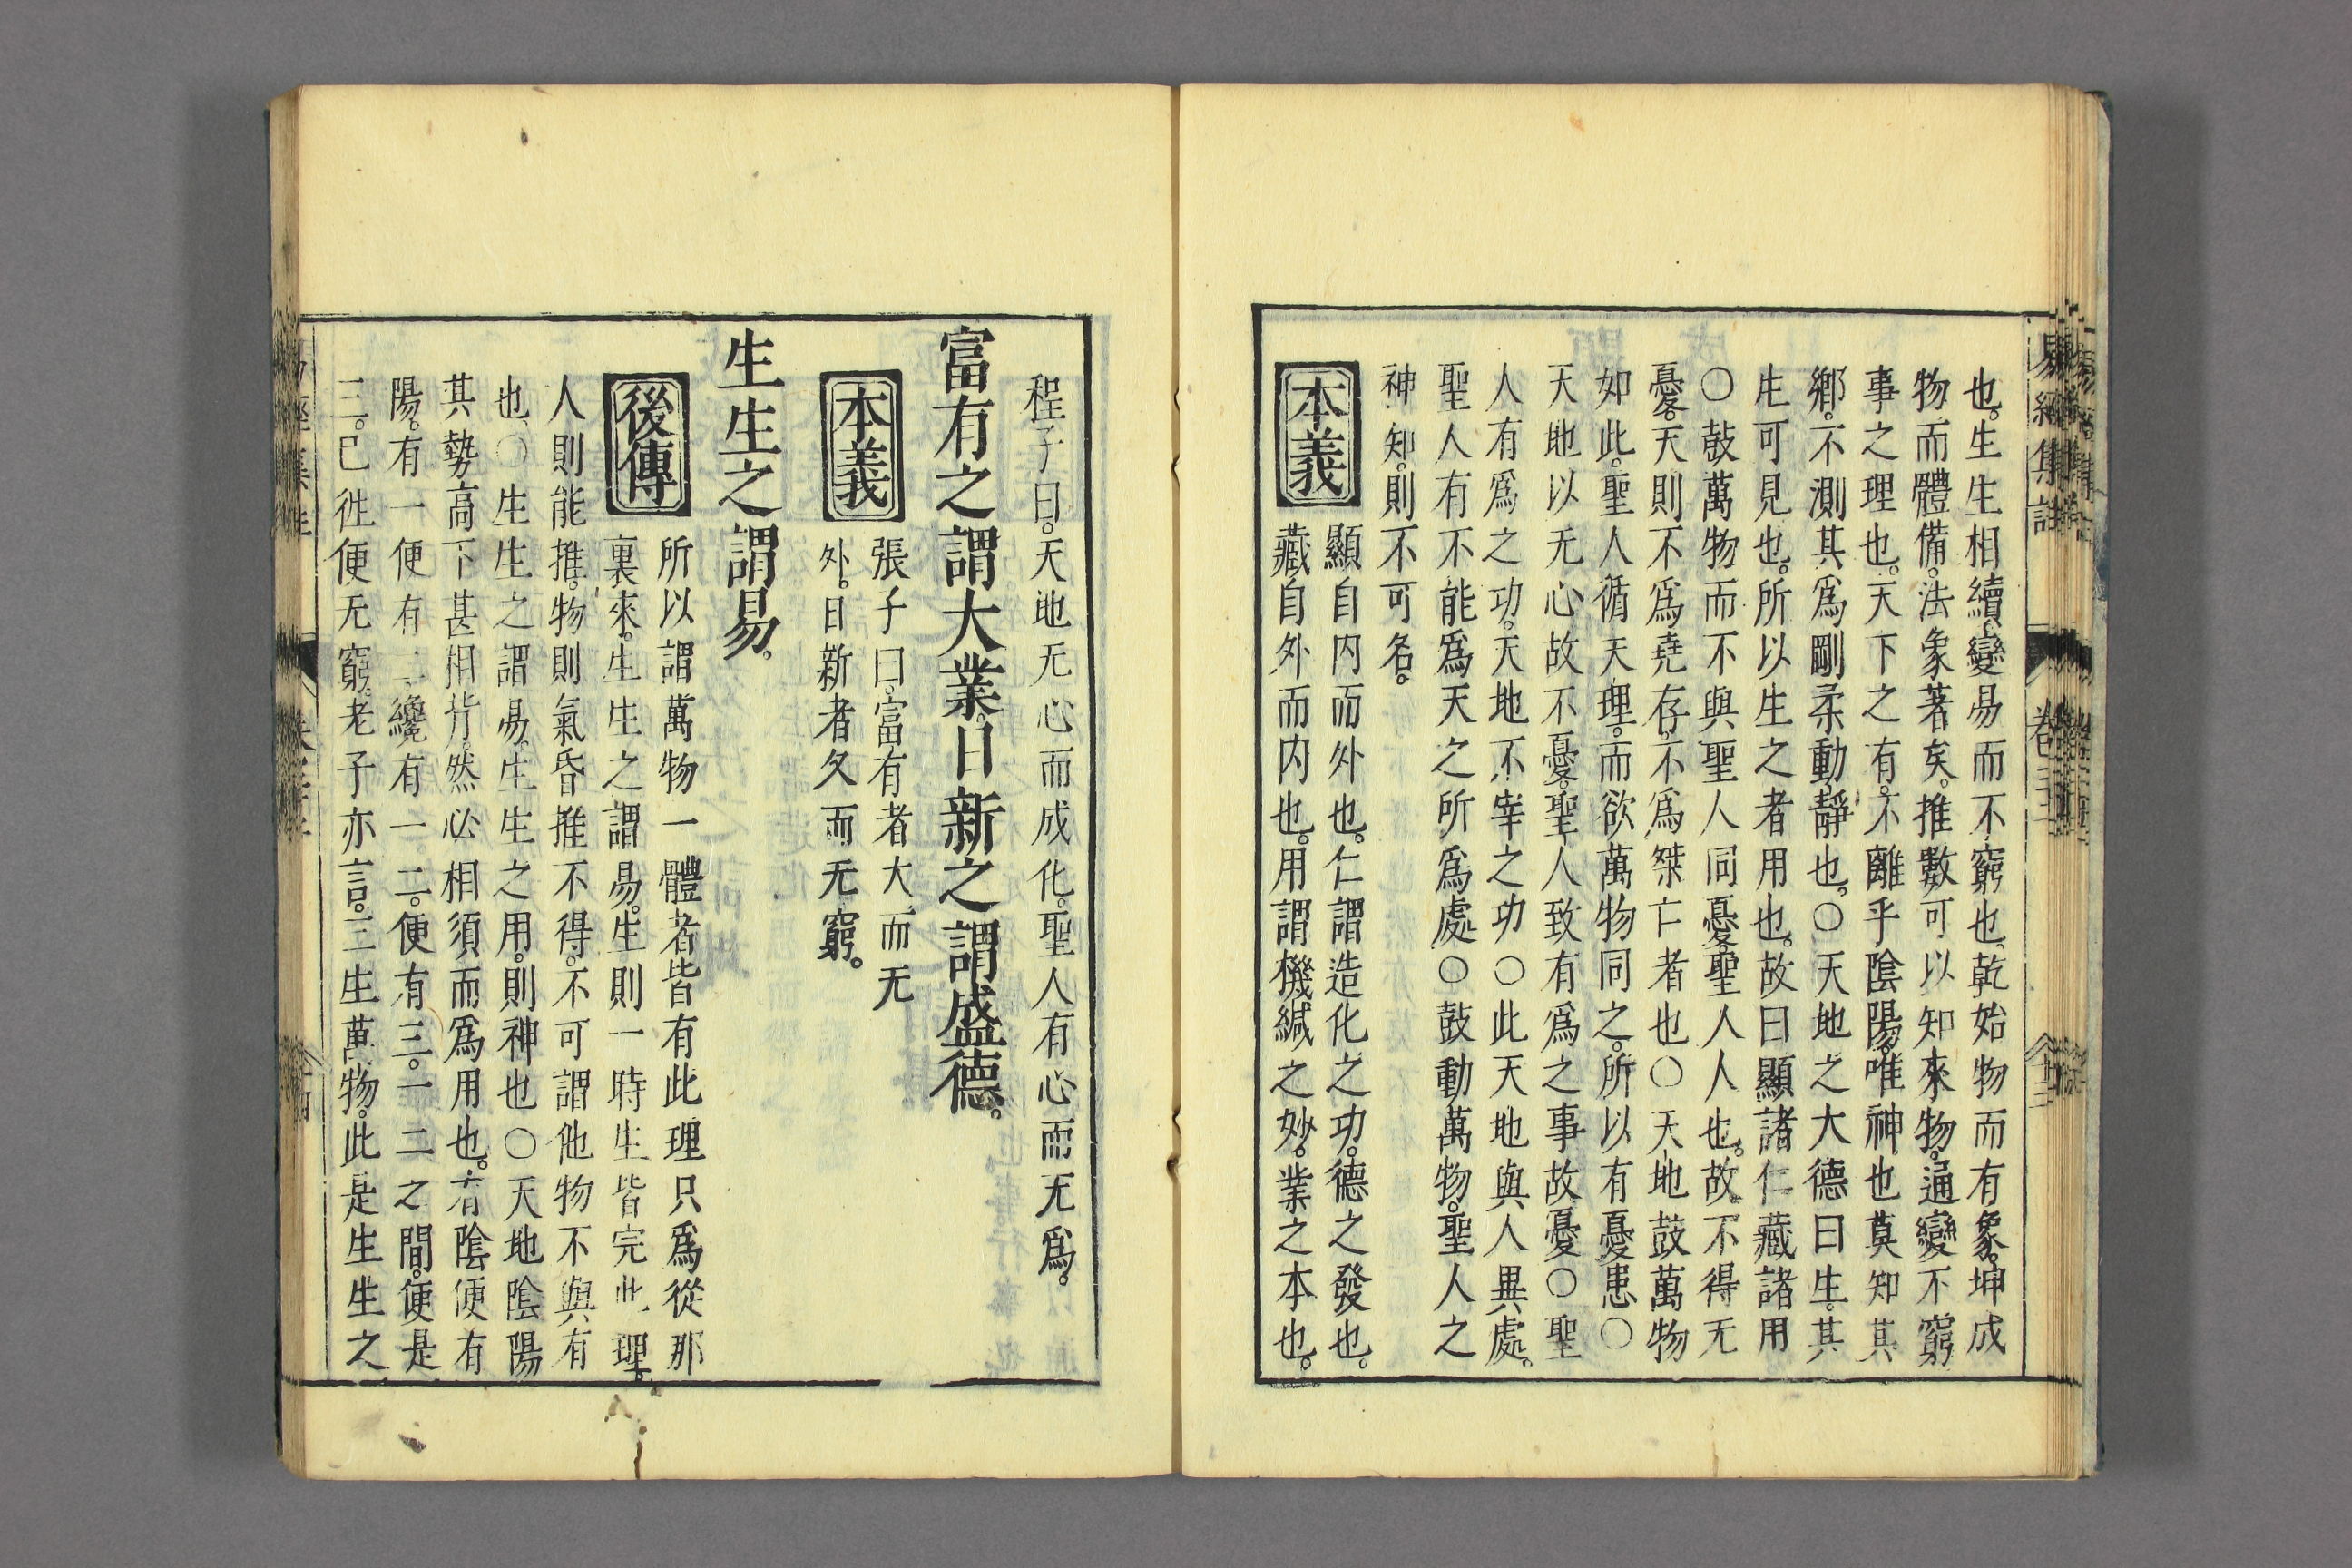 易經集註
卷三
十三
也。生生相續。變易而不窮也。乾始物而有象。坤成
物而體備。法象著矣。推數可以知來物。通變不窮
事之理也。天下之有。不離乎陰陽。唯神也莫知其
鄉。不測其爲剛柔動靜也。〇天地之大德曰生。其
生可見也。所以生之者用也。故曰顯諸仁藏諸用
〇鼓萬物而不與聖人同憂。聖人人也。故不得无
憂。天則不爲堯存。不爲桀亡者也〇天地鼓萬物
如此。聖人循天理。而欲萬物同之。所以有憂患〇
天地以无心故不憂。聖人致有爲之事故憂〇聖
人有爲之功。天地不宰之功〇此天地與人異處。
聖人有不能爲天之所爲處〇鼓動萬物。聖人之
神知。則不可名。
本義
顯自内而外也。仁謂造化之功。德之發也。
藏自外而内也。用謂機緘之妙。業之本也。
程子曰。天地无心而成化。聖人有心而无爲。
富有之謂大業。日新之謂盛德。
本義
張子曰。富有者大而无
外。日新者久而无窮。
生生之謂易。
後傳
所以謂萬物一體者皆有此理只爲從那
裏來。生生之謂易。生則一時生皆完此理。
人則能推。物則氣昏推不得。不可謂他物不與有
也〇生生之謂易。生生之用。則神也〇天地陰陽
其勢高下甚相背。然必相須而爲用也。有陰便有
陽。有一便有二。纔有一。二。便有三。一二之間。便是
三。已徃便无窮。老子亦言。三生萬物。此是生生之